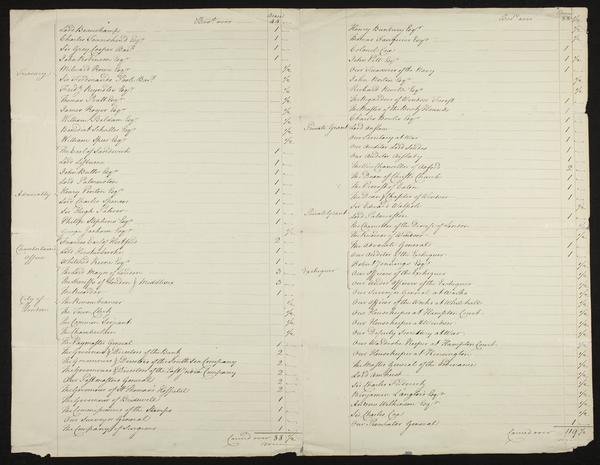 Bro.t over
Lord Beauchamp 1
Charles Townshend Esq.r 1
Sir Grey Cooper Bar.t 1
John Robinson Esq.r 1
Treasury
Milward Rowe Esq.r ½
Sir Ferdinando Poole Bar.t ½
Fred.k Reynolds Esq.r ½
Thomas Pratt Esq.r ½
James Royer Esq.r ½
William Beldam Esq.r ½
Benedict Schutz Esq.r ½
William Speer Esq.r ½
The Earl of Sandwich 1
Lord Lisburne 1
John Buller Esq.r 1
Lord Palmerston 1
Admiralty
Henry Penton Esq.r 1
Lord Charles Spencer 1
Sir Hugh Palliser 1
Philip Stephens Esq.r 1
George Jackson Esq.r ½
Chamberlain's Office
Francis Earl of Hertford 2
Lord Hinchinbroke 1
Whitshed Keene Esq.r 1
City of London
The Lord Mayor of London 3
The Sheriffs of London & Middlesex 3
The Recorder 1
The Remembrancer ½
The Town Clerk ½
The Common Serjeant ½
The Chamberlain ½
The Paymaster General 1
The Governor & Directors of the Bank 2
The Governour & Directors of the South Sea Company 2
The Governour & Directors of the East India Company 2
The Postmasters General 2
The Governour of St. Thomas's Hospital 2
The Governour of Bridewell 1
The Commissioners of the Stamps 1
Our Surveyor General 1
The Company of Surgeons 1
Carried over 88 ½
Bro.t over 88 ½
Henry Bunbury Esq.r ½
Thomas Fauquier Esq.r ½
Colonel Cox 1
John Pitt Esq.r 1
Our Treasurer of the Navy 1
John Norton Esq.r ½
Richard ... Esq.r ½
The ... of Windsor Forest 1
The Master of the ... 1
Charles ... Esq.r 1
Private Grant Lord Onslow 1
Our Secretary at War 1
Our Auditor Lord Sondes 1
Our Auditor Aislabie 1
The Vice Chancellor of Oxford 2
The Dean of Christ Church 1
The Provost of Eaton 1
The Dean & Chapter of Windsor 1
Sir Edward Walpole ½
Private Grant Lord Palmerston 1
The Chancellor of the Diocese of London ½
The Recorder of Windsor ½
The Advocate General 1
Exchequer
Our Auditor of the Exchequer 1
Robert Jennings Esq.r ½
Our Officers of the Exchequer ½
Our under Officers of the Exchequer ½
Our Surveyor General at Works ½
Our Officer of the Works at Whitehall ½
Our Housekeeper at Hampton Court ½
Our Housekeeper at Windsor ½
Our Deputy Secretary at War ½
Our Wardrobe Keeper at Hampton Court ½
Our Housekeeper at Kensington ½
The Master General of the Ordnance ½
Lord Amherst ½
Sir Charles Frederick ½
Benjamin Langlois Esq.r ½
Andrew Wilkinson Esq.r ½
Sir Charles Cox ½
Our Comptroller General 1
Carried over 119 ½